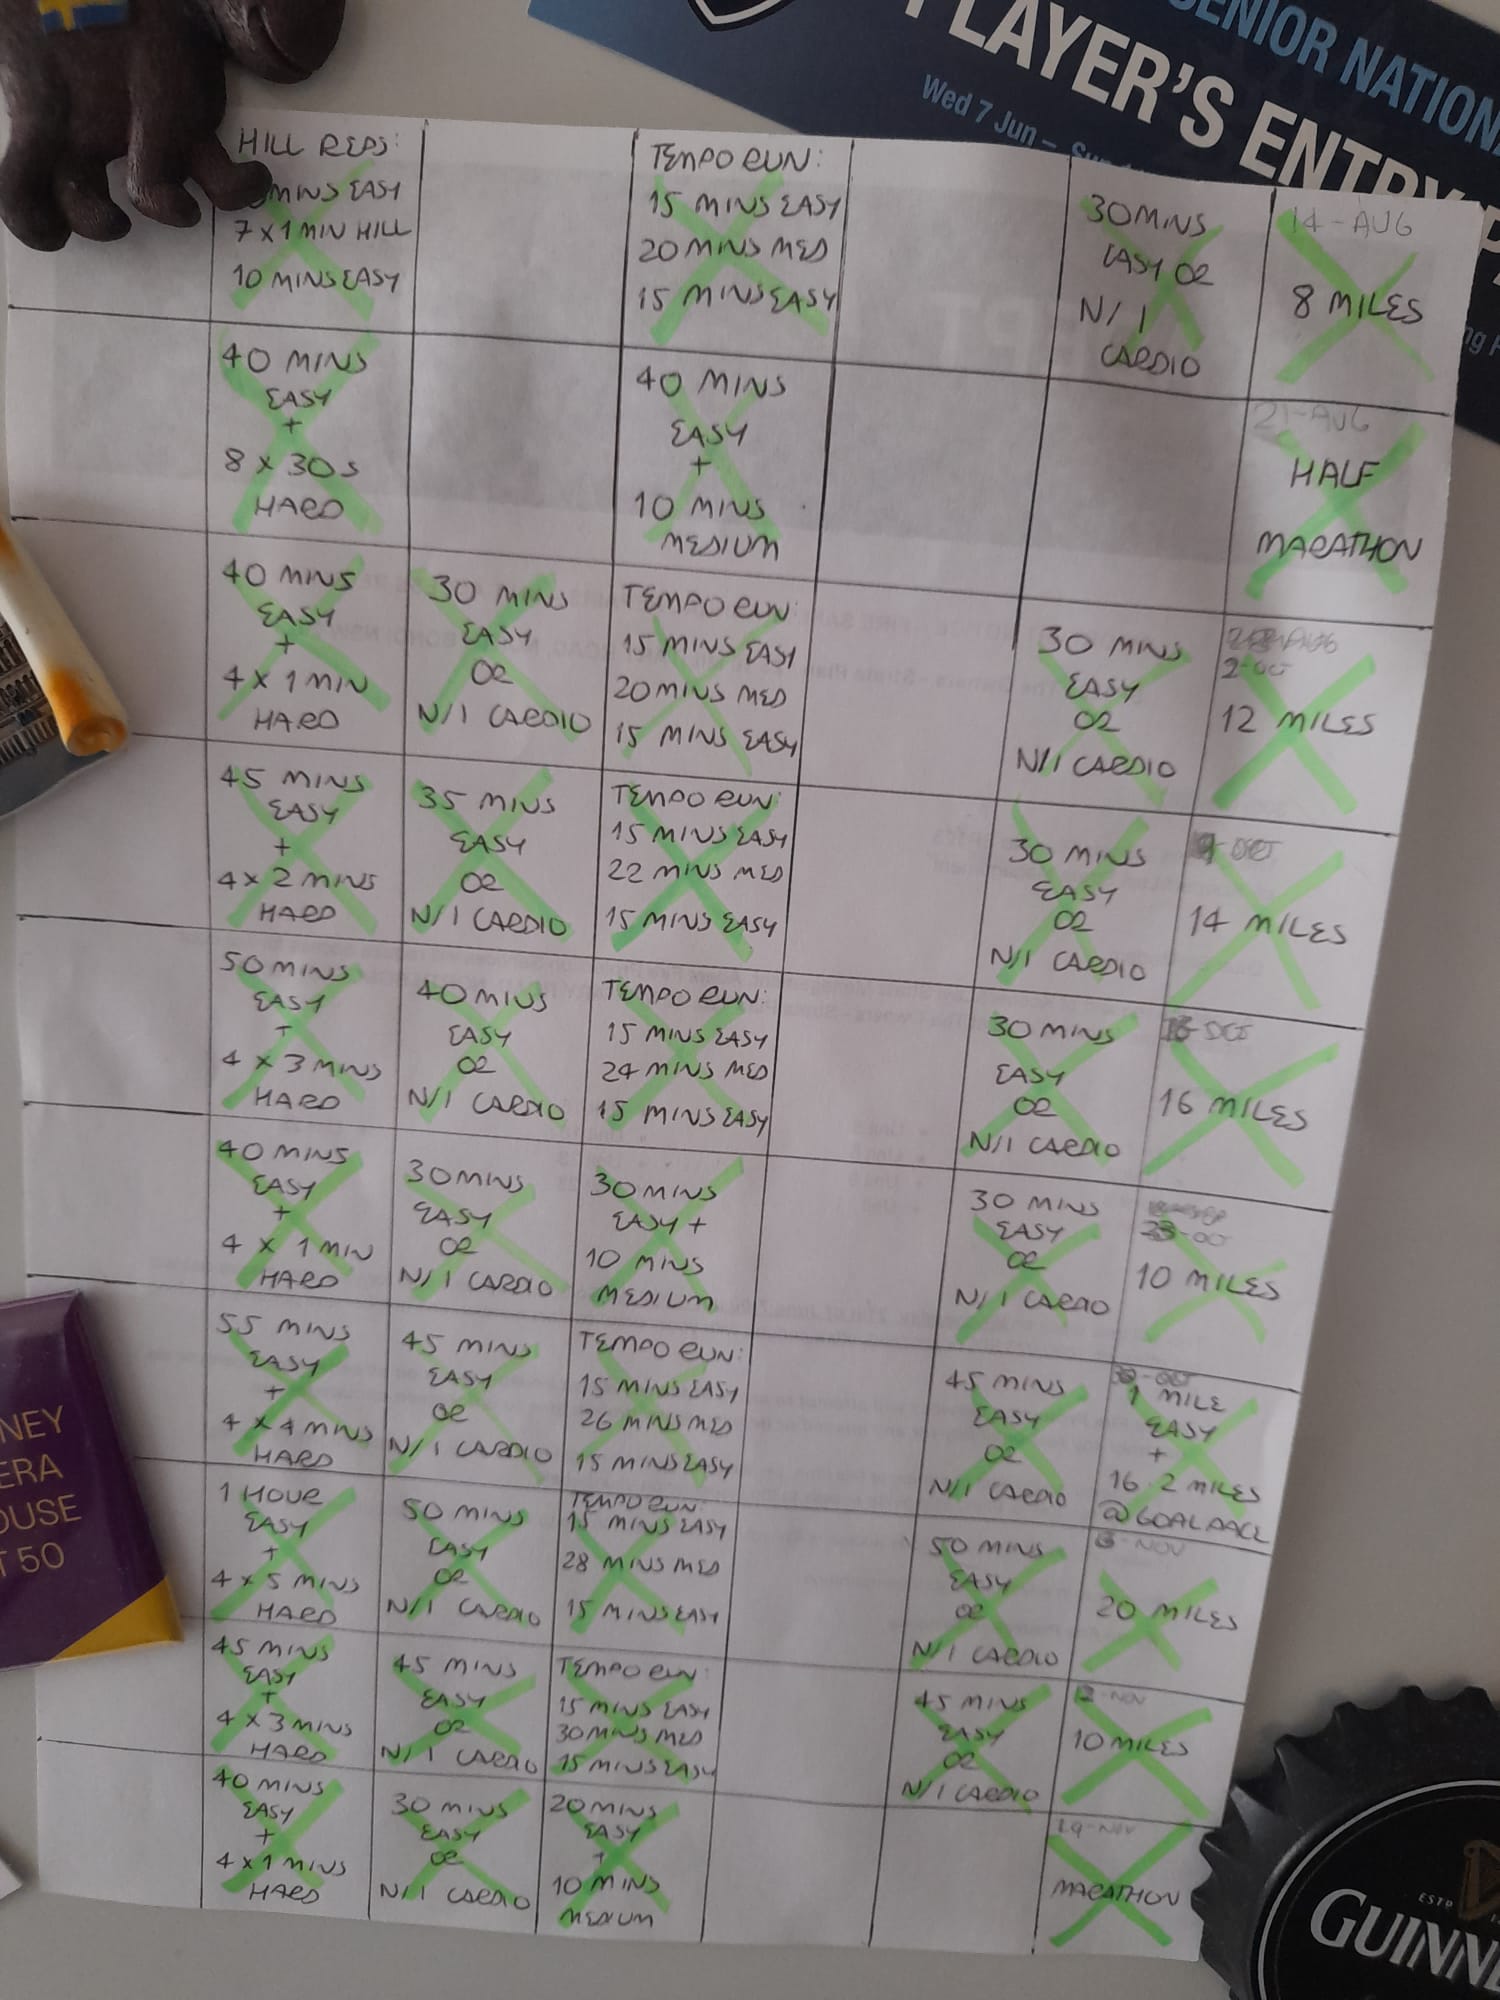 SENIOR NATION
PLAYER'S ENTRY
Wed 7 Jun –
HILL REPS:
MINS EASY
7 x 1 MIN HILL
10 MINS EASY
TEMPO RUN:
15 MINS EASY
20 MINS MED
15 MINS EASY
30 MINS
EASY OR
N/I
CARDIO
14-AUG
8 MILES
40 MINS
EASY
+
8 x 30S
HARD
40 MINS
EASY
+
10 MINS
MEDIUM
21-AUG
HALF
MARATHON
40 MINS
EASY
+
4 x 1 MIN
HARD
30 MINS
EASY
OR
N/I CARDIO
TEMPO RUN:
15 MINS EASY
20 MINS MED
15 MINS EASY
30 MINS
EASY
OR
N/I CARDIO
2-OCT
12 MILES
45 MINS
EASY
+
4 x 2 MINS
HARD
35 MINS
EASY
OR
N/I CARDIO
TEMPO RUN:
15 MINS EASY
22 MINS MED
15 MINS EASY
30 MINS
EASY
OR
N/I CARDIO
9-OCT
14 MILES
50 MINS
EASY
+
4 x 3 MINS
HARD
40 MINS
EASY
OR
N/I CARDIO
TEMPO RUN:
15 MINS EASY
24 MINS MED
15 MINS EASY
30 MINS
EASY
OR
N/I CARDIO
OCT
16 MILES
40 MINS
EASY
+
4 x 1 MIN
HARD
30 MINS
EASY
OR
N/I CARDIO
30 MINS
EASY +
10 MINS
MEDIUM
30 MINS
EASY
OR
N/I CARDIO
23-OCT
10 MILES
55 MINS
EASY
+
4 x 4 MINS
HARD
45 MINS
EASY
OR
N/I CARDIO
TEMPO RUN:
15 MINS EASY
26 MINS MED
15 MINS EASY
45 MINS
EASY
OR
N/I CARDIO
30-OCT
1 MILE
EASY
+
16.2 MILES
@ GOAL PACE
1 HOUR
EASY
+
4 x 5 MINS
HARD
50 MINS
EASY
OR
N/I CARDIO
TEMPO RUN:
15 MINS EASY
28 MINS MED
15 MINS EASY
50 MINS
EASY
OR
N/I CARDIO
6-NOV
20 MILES
45 MINS
EASY
+
4 x 3 MINS
HARD
45 MINS
EASY
OR
N/I CARDIO
TEMPO RUN:
15 MINS EASY
30 MINS MED
15 MINS EASY
45 MINS
EASY
OR
N/I CARDIO
NOV
10 MILES
40 MINS
EASY
+
4 x 1 MINS
HARD
30 MINS
EASY
OR
N/I CARDIO
20 MINS
EASY
+
10 MINS
MEDIUM
NOV
MARATHON
NEY
ERA
OUSE
T 50
ESTD
GUINNE